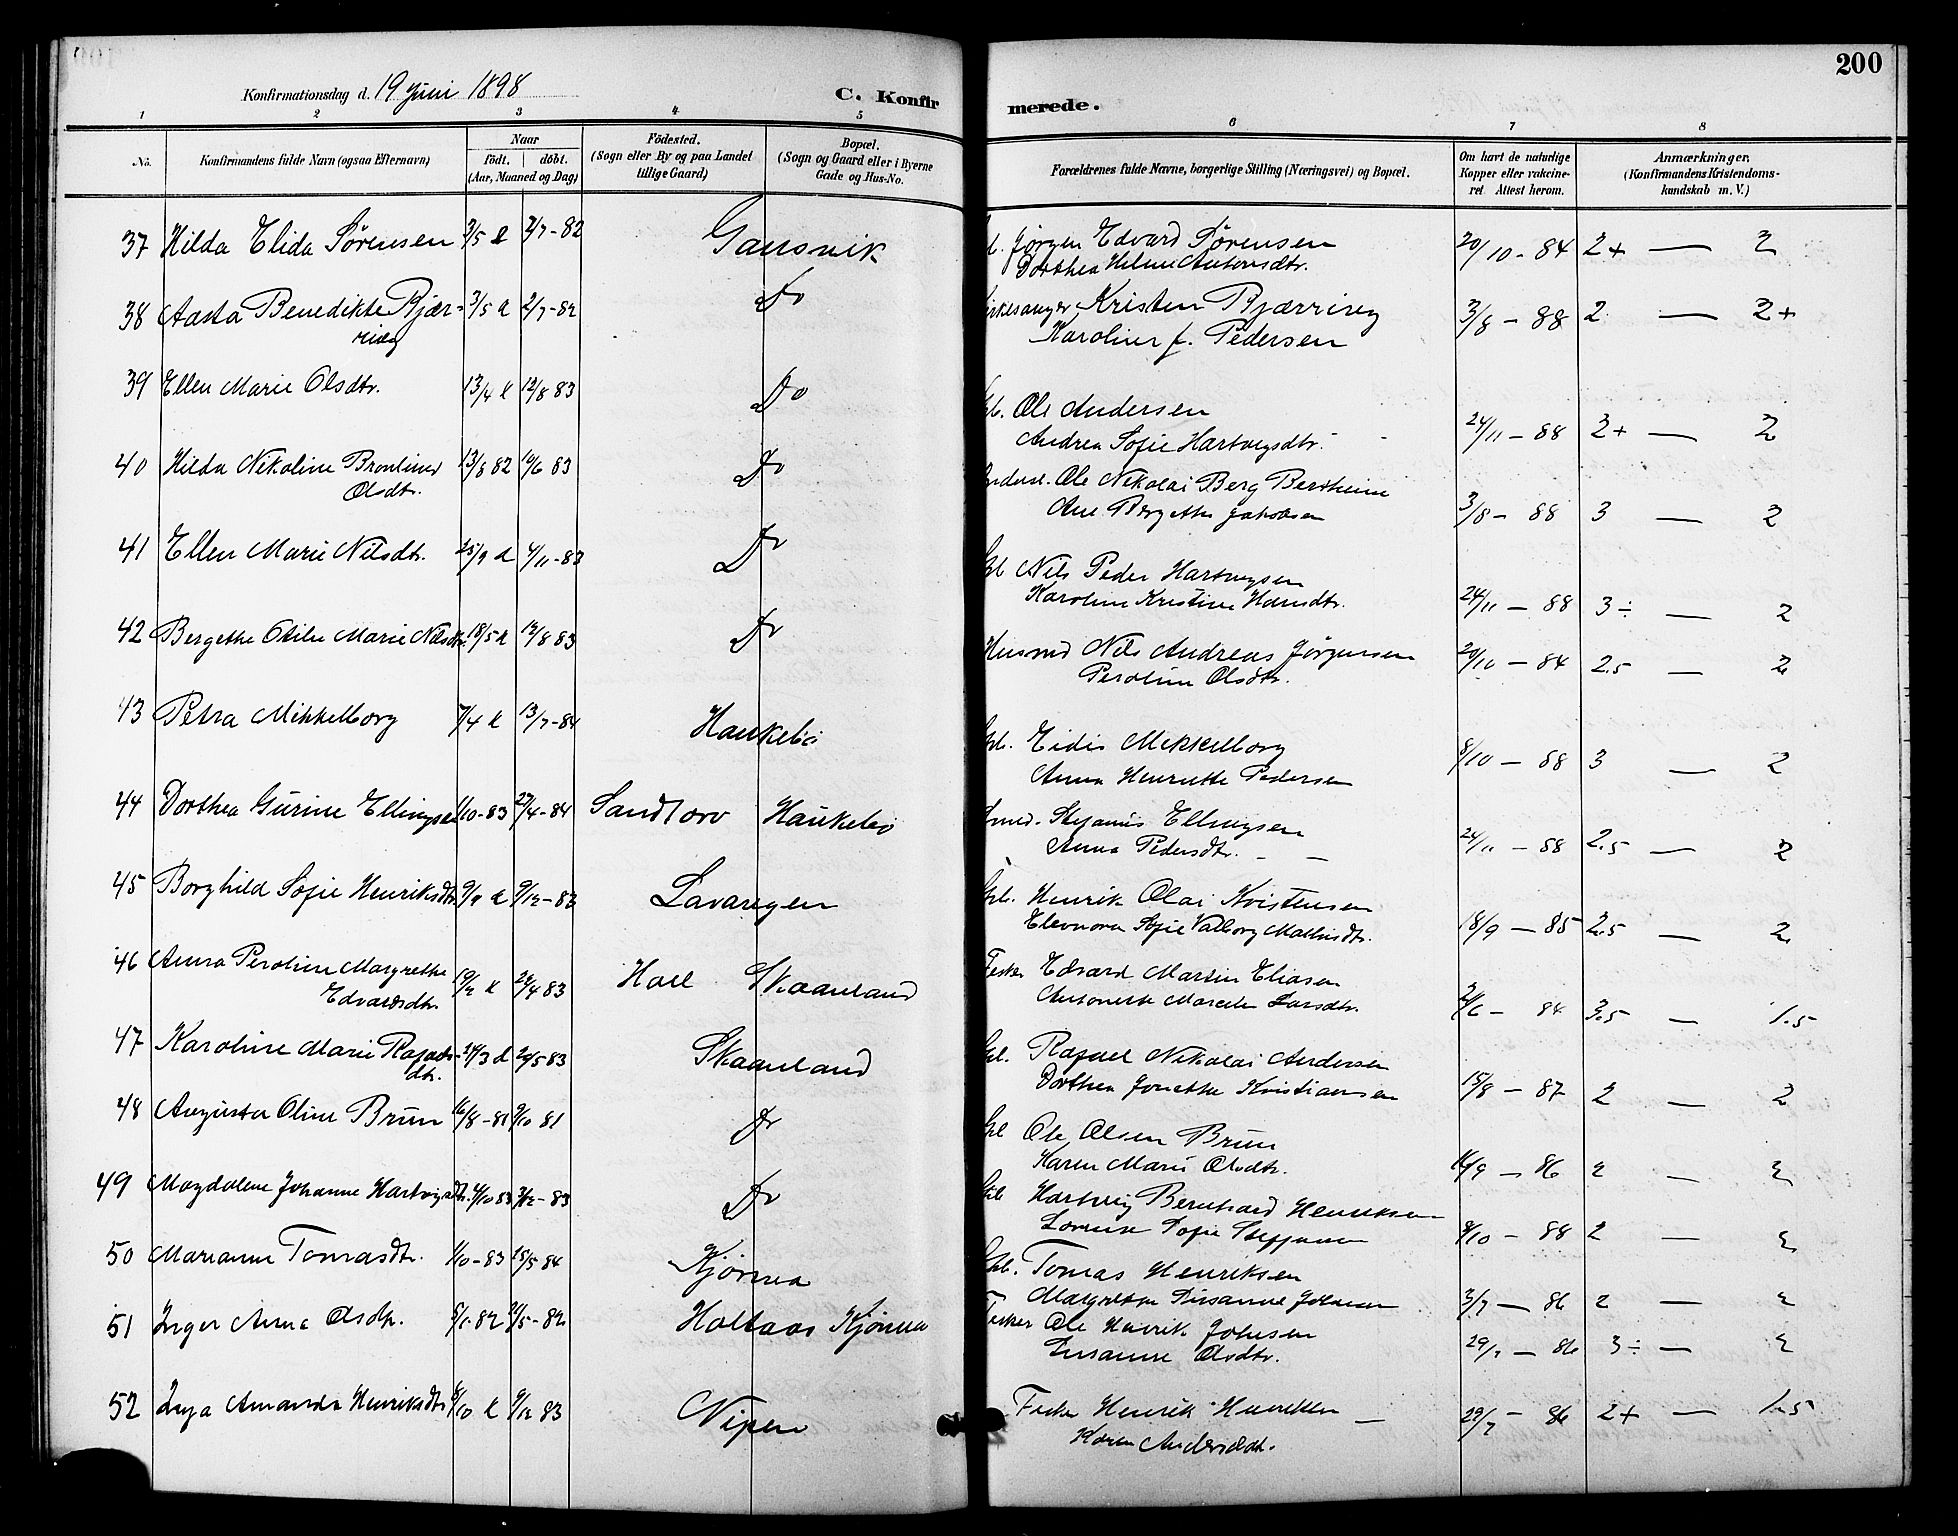 200
Konfirmationsdag d. 19 Juni 1898
C. Konfirmerede.
1 2 3 4 5 6 7 8
No.
Konfirmandens fulde Navn (ogsaa Efternavn)
Naar
födt. döbt.
(Aar, Maaned og Dag)
Födested.
(Sogn eller By og paa Landet
tillige Gaard)
Bopæl.
(Sogn og Gaard eller i Byerne
Gade og Hus-No.
Forældrenes fulde Navne, borgerlige Stilling (Næringsvei) og Bopæl.
Om havt de naturlige
Kopper eller vakcine-
ret. Attest herom.
Anmærkninger.
(Konfirmandens Kristendoms-
kundskab m. V.)
37 Hilda Elida Sørensen 2/7-82 Gansvik Jørgen Edvard Sørensen 20/10-84 2+ — 2
Dorthea Helene Antonsdtr.
38 Aasta Benedikte Bjær- 3/5 2/7-82 Do Kirkesanger Kristen Bjærring 3/8-88 2 — 2+
ring Karoline f. Pedersen
39 Ellen Marie Olsdtr. 13/4 12/8 83 Do Gb. Ole Andersen 24/11-88 2+ — 2
Andrea Sofie Hartvigsdtr.
40 Hilda Nikoline 13/8 82 10/6 83 Do Ole Nikolai Berg Bertheus 3/8-88 3 — 2
Olsdtr. Ane Bergethe Jakobsen
41 Ellen Marie Nilsdtr. 25/9 4/11-83 Do Gb Nils Peder Hartvigsen 24/11-88 3÷ — 2
Karoline Kristine Hansdtr.
42 Bergethe Otilie Marie Nilsdtr. 18/5 12/8 83 Do Husmd Nils Andreas Jørgensen 20/10-84 2.5 — 2
Peroline Olsdtr.
43 Petra Mikkelborg 7/4 13/7-84 Haukebø Gb. Eidis Mikkelborg 8/10-88 3 — 2
Anna Henriette Pedersen
44 Dorthea Gurine Ellingsen 1/10-83 27/4-84 Sandtorv Haukebø Smed. Stefanus Ellingsen 24/11-88 2.5 — 2
Anna Pedersdtr. — —
45 Borghild Sofie Henriksdtr. 9/9 9/12-83 Lavangen Gb. Henrik Olai Kristensen 18/9-85 2.5 — 2
Eleonora Sofie Valborg
46 Anna Peroline Margrethe 19/2 29/4 83 Holl Skaanland Fisker Edvard Martin Eliasen 2/6-84 3.5 — 1.5
Edvardsdtr. Larsdtr.
47 Karoline Marie Rafaels- 24/3 20/5 83 Skaanland Gb. Rafael Nikolai Andersen 15/8-87 2 — 2
dtr. Dorthea Jonette Kristiansen
48 Augusta Oline Brun 16/8-81 9/10 81 Do Gb Ole Olsen Brun 14/9-86 2 — 2
Karen Marie Olsdtr.
49 Magdalene Johanne Hartvigsdtr. 4/10 83 Do Gb Hartvig Bernhard Henriksen 9/10-88 2 — 2
Sofie Steffensen
50 Marianne Tomasdtr. 1/10-83 25/5 84 Kjønna Gb. Tomas Henriksen
Margrethe Susanne Johnsen 3/7-86 2 — 2
51 Inger Anna Olsdtr. Holtaas Kjønna Fisker Ole Henrik Johnsen
Susanne Olsdtr. 29/7-86 3÷ — 2
52 Inga Amanda Henriksdtr 8/10 9/12 83 Nipen Fisker Henrik Henriksen — 29/7-86 2+ — 1.5
Karen Andersdtr.